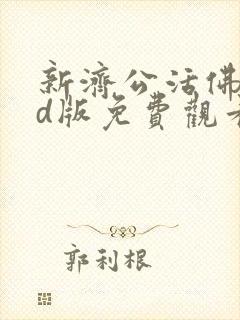 新濟公活佛
d版免費觀看
郭利根